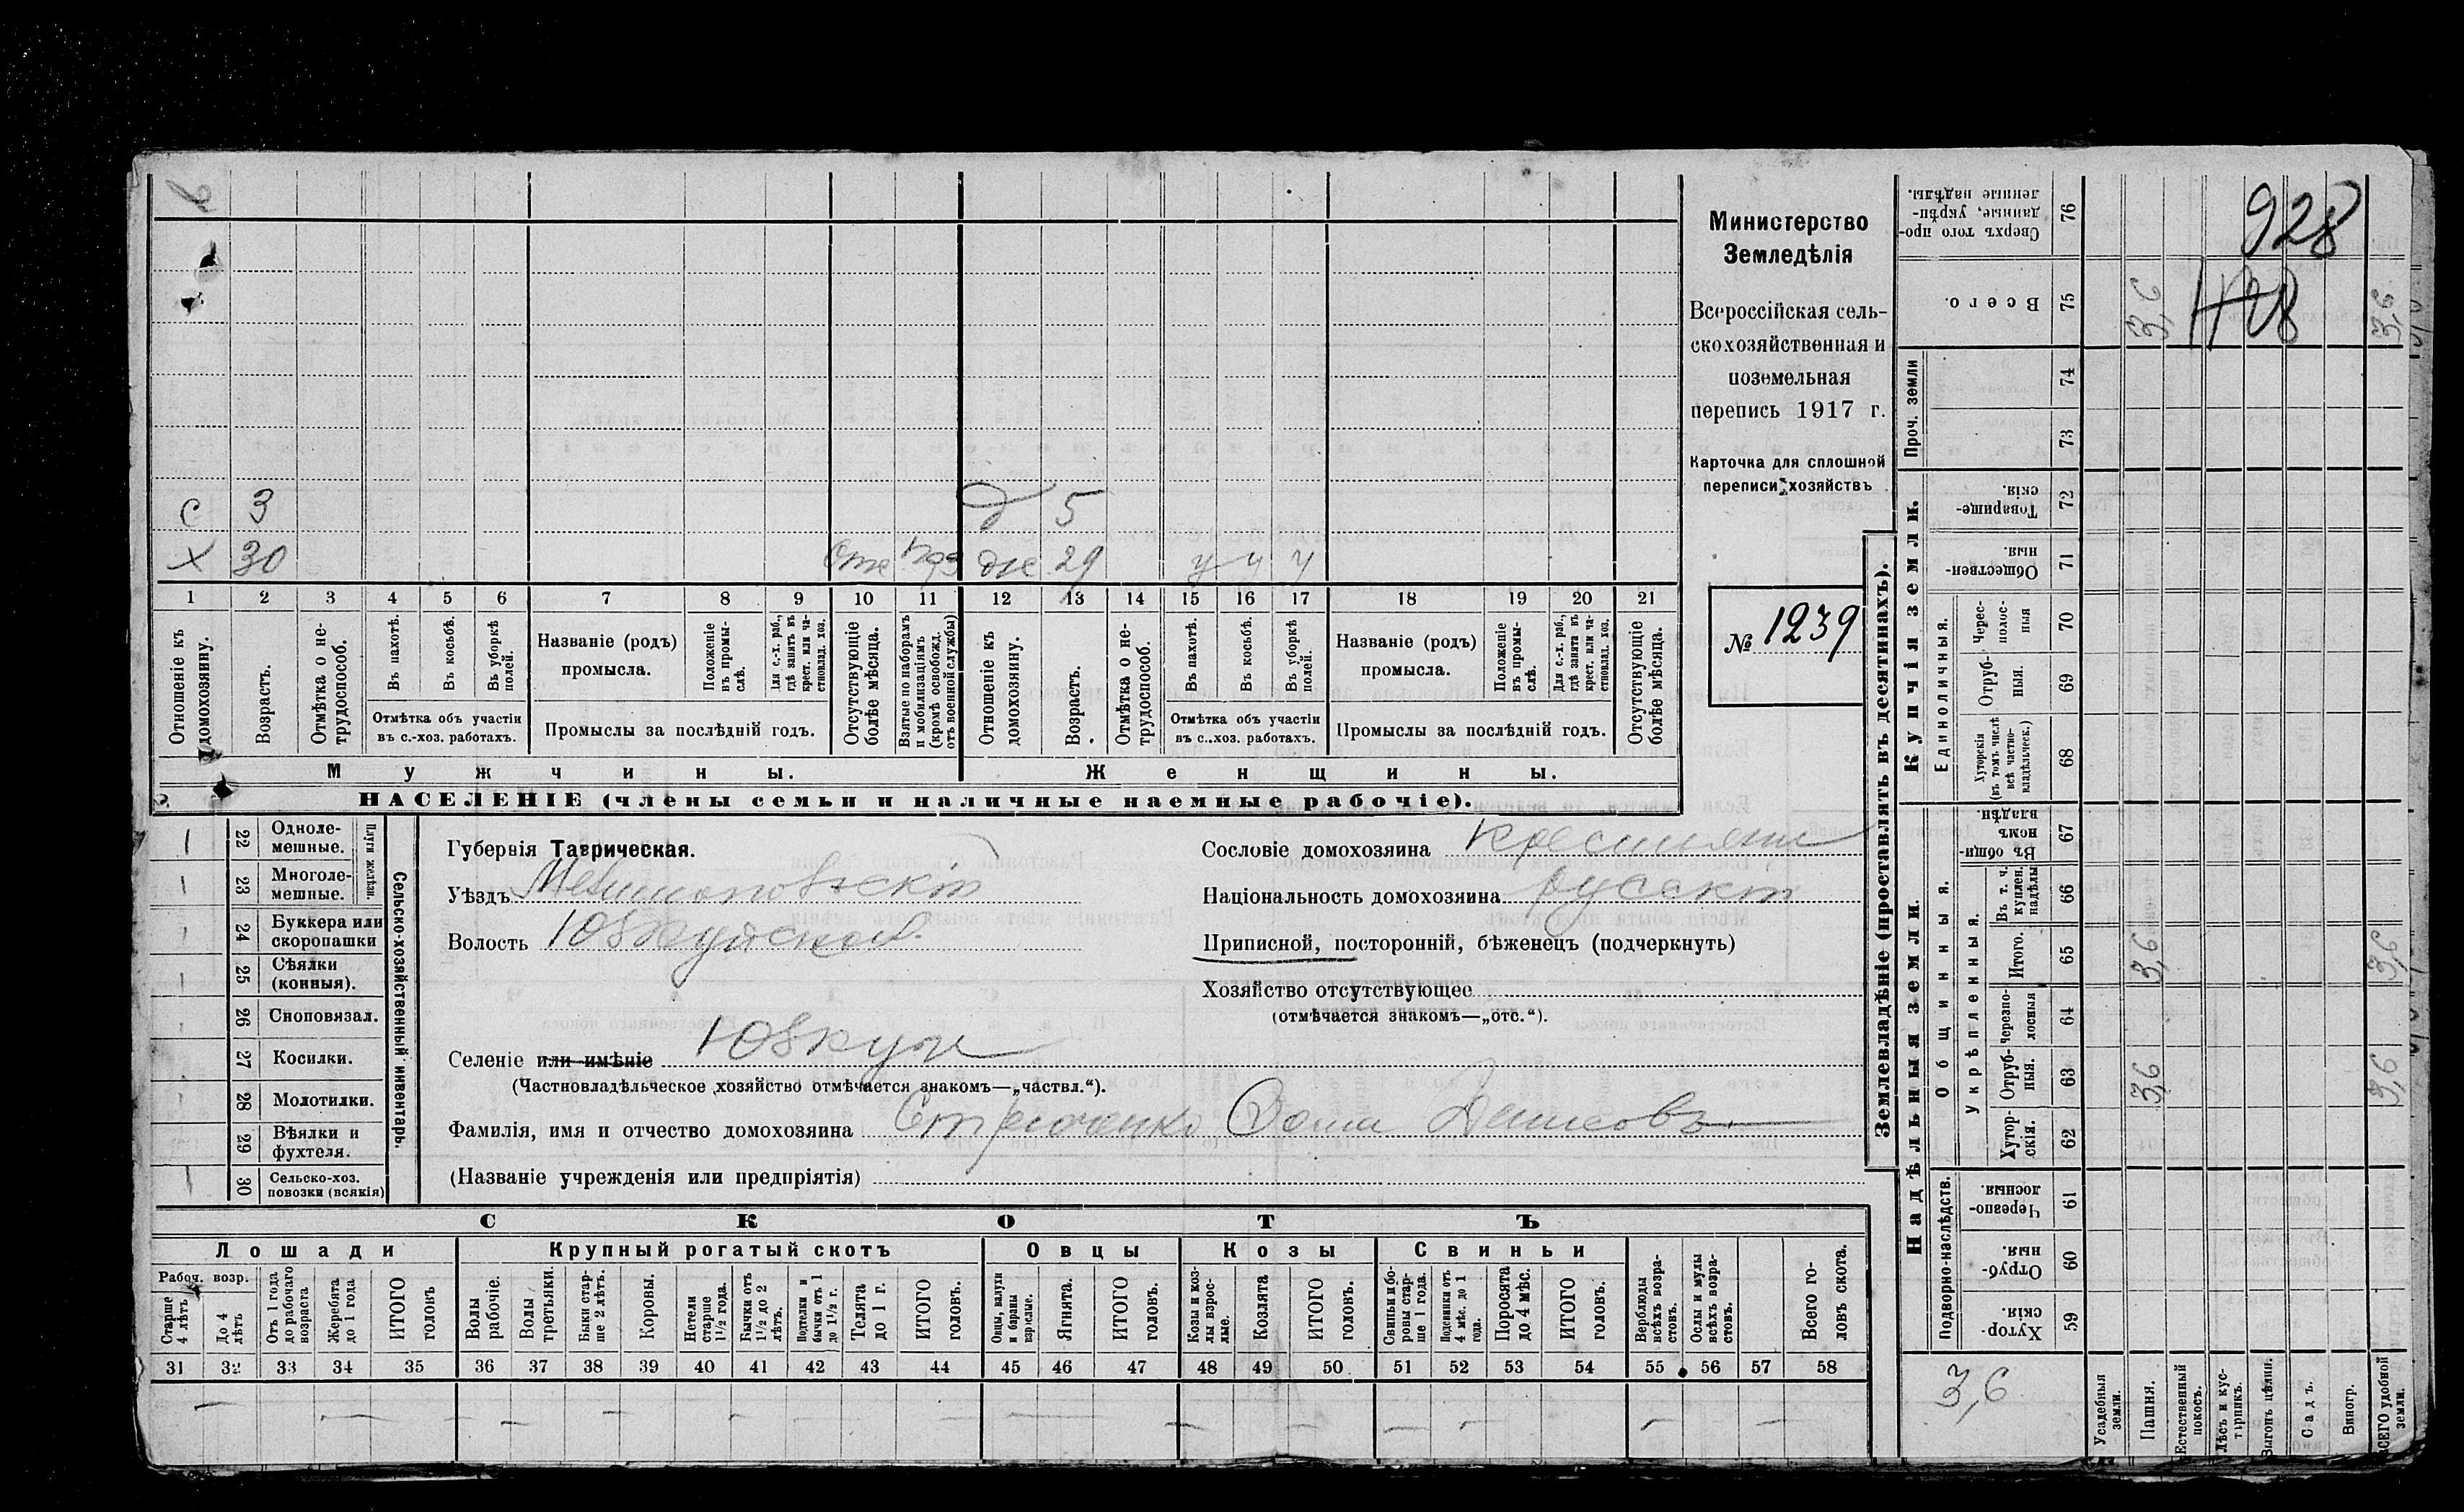 928
428
Министерство
Земледѣлія
Всероссійская сель-
скохозяйственная и
поземельная
перепись 1917 г.
Карточка для сплошной
переписи хозяйствъ
№ 1239
с 3 д 5
х 30 Отс 29 у ч ч
1 2 3 4 5 6 7 8 9 10 11 12 13 14 15 16 17 18 19 20 21
Отношеніе къ домохозяину.
Возрастъ.
Отмѣтка о не-трудоспособ.
Въ пахотѣ.
Въ косьбѣ.
Въ уборкѣ полей.
Отмѣтка объ участіи
въ с.-хоз. работахъ.
Названіе (родъ)
промысла.
Положеніе въ промы-слѣ.
Для с.-х. раб., гдѣ занятъ въ крест. или ча-стновлад. хоз.
Промыслы за послѣдній годъ.
Отсутствующіе болѣе мѣсяца.
Взятые по наборамъ и мобилизаціямъ (кромѣ освобожд. отъ военной службы)
Отношеніе къ домохозяину.
Возрастъ.
Отмѣтка о не-трудоспособ.
Въ пахотѣ.
Въ косьбѣ.
Въ уборкѣ полей.
Отмѣтка объ участіи
въ с.-хоз. работахъ.
Названіе (родъ)
промысла.
Положеніе въ промы-слѣ.
Для с.-х. раб., гдѣ занята въ крест. или ча-стновлад. хоз.
Промыслы за послѣдній годъ.
Отсутствующіе болѣе мѣсяца.
Мужчины.
Женщины.
НАСЕЛЕНІЕ (члены семьи и наличные наемные рабочіе).
Сельско-хозяйственный инвентарь.
Плуги желѣзн.
22 Одноле-
мешные.
23 Многоле-
мешные.
24 Буккера или
скоропашки
25 Сѣялки
(конныя).
26 Сноповязал.
27 Косилки.
28 Молотилки.
29 Вѣялки и
фухтеля.
30 Сельско-хоз.
повозки (всякія)
Губернія Таврическая.
Уѣздъ Мелитопольскій
Волость Юзкуйская
Селеніе или имѣніе Юзкуи
(Частновладѣльческое хозяйство отмѣчается знакомъ—„частвл.“).
Фамилія, имя и отчество домохозяина
Денисовъ
(Названіе учрежденія или предпріятія)
Сословіе домохозяина крестьяне
Національность домохозяина русскій
Приписной, посторонній, бѣженецъ (подчеркнуть)
Хозяйство отсутствующее
(отмѣчается знакомъ—„отс.“).
СКОТЪ
Лошади
Рабоч. возр.
Старше 4 лѣтъ
До 4 лѣтъ
Отъ 1 года до рабочаго возраста
Жеребята до 1 года
ИТОГО головъ
Крупный рогатый скотъ
Волы рабочіе.
Волы третьяки.
Быки стар-ше 2 лѣтъ.
Коровы.
Нетели старше 1½ года.
Бычки отъ 1½ до 2 лѣтъ.
Подтелки и бычки отъ 1 до 1½ г.
Телята до 1 г.
ИТОГО головъ.
Овцы
Овцы, валухи и бараны взрослые.
Ягнята.
ИТОГО головъ.
Козы
Козы и коз-лы взрос-лые.
Козлята
ИТОГО головъ.
Свиньи
Свиньи и бо-ровы стар-ше 1 года.
Подсвинки отъ 4 мѣс. до 1 года.
Поросята до 4 мѣс.
ИТОГО головъ.
Верблюды всѣхъ возра-стовъ.
Ослы и мулы всѣхъ возра-стовъ.
Всего го-ловъ скота.
31 32 33 34 35 36 37 38 39 40 41 42 43 44 45 46 47 48 49 50 51 52 53 54 55 56 57 58
Землевладѣніе (проставлять въ десятинахъ).
Купчія земли.
Надѣльныя земли.
Сверхъ того про-данные, укрѣп-ленные надѣлы. 76
Всего. 75 3,6 3,6
Проч. земли 74
73
Товарище-скія. 72
Обществен-ныя. 71
Единоличныя.
Черес-полос-ныя 70
Отруб-ныя. 69
Хуторскія (въ томъ числѣ всѣ частно-владѣльческ.) 68
Общинныя.
Въ общин-номъ владѣн. 67
Укрѣпленныя.
Въ т. ч. куплен. надѣлы 66
Итого. 65 3,6 3,6
Черезпо-лосныя 64
Отруб-ныя. 63 3,6 3,6
Хутор-скія. 62
Подворно-наслѣдств.
Черезпо-лосныя. 61
Отруб-ныя. 60
Хутор-скія. 59
3,6
Усадебныя земли.
Пашня.
Естественный покосъ.
Лѣсъ и кус-тарникъ.
Выгонъ цѣлин.
Садъ.
Виногр.
ВСЕГО удобной земли.